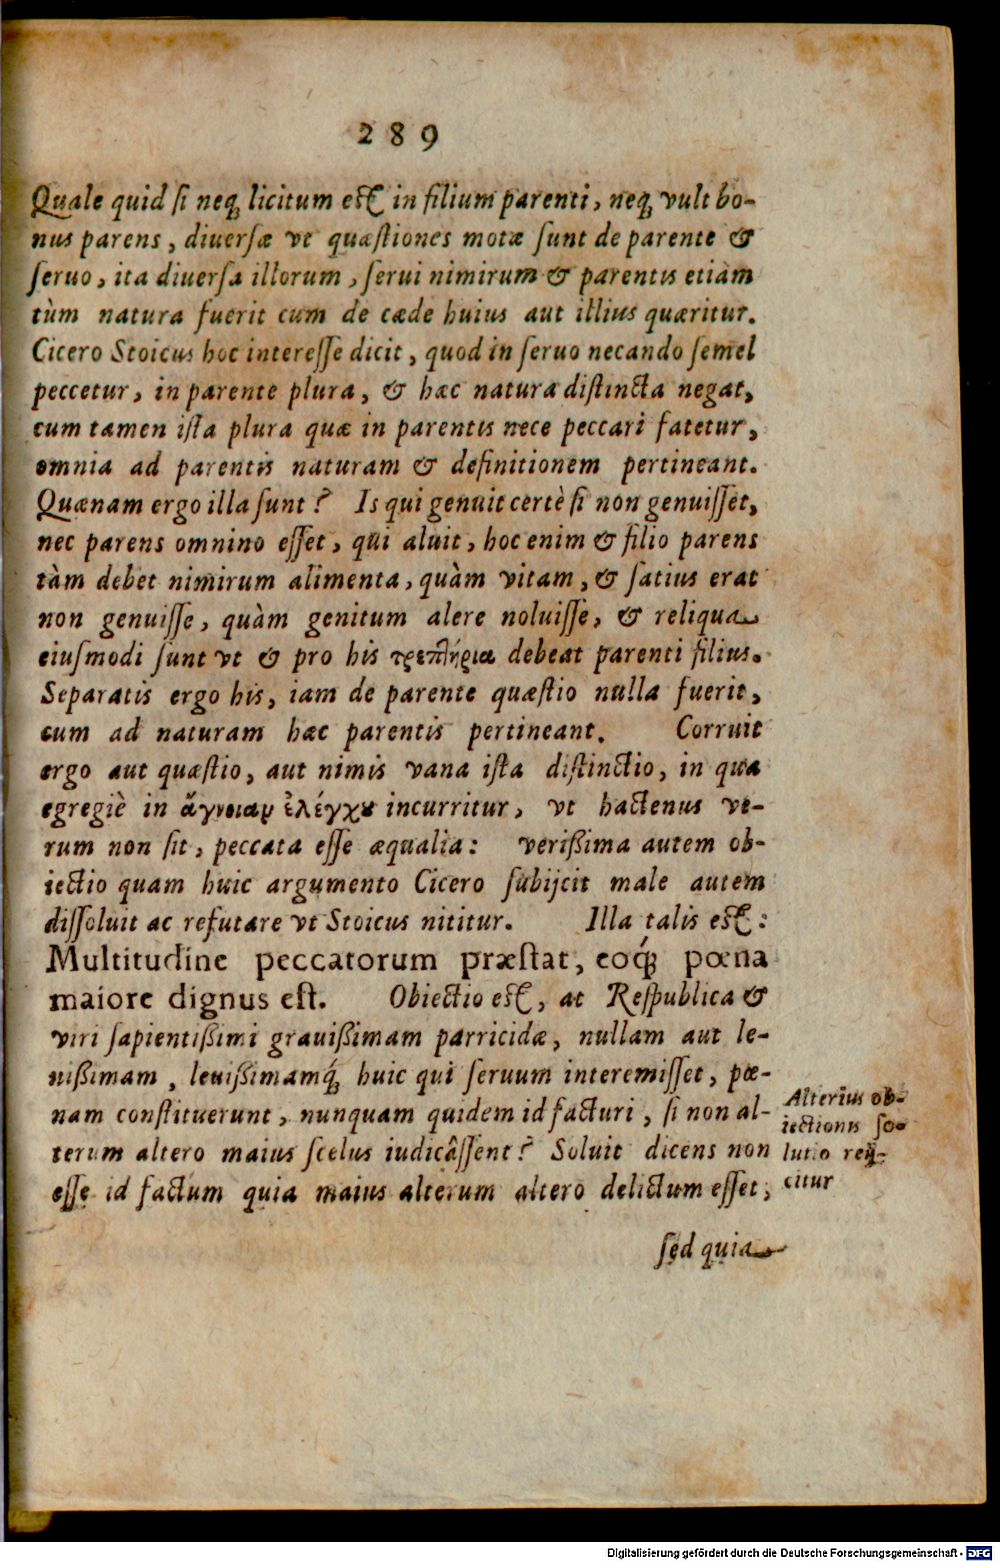 289
Quale quid ſi neq; licitum eſt in filium parenti, neq; vult bo-
nus parens, diuerſæ vt quæſtiones motæ ſunt de parente &
ſeruo, ita diuerſa illorum, ſerui nimirum & parentis etiam
tùm natura fuerit cum de cæde huius aut illius quæritur.
Cicero Stoicus hoc intereſſe dicit, quod in ſeruo necando ſemel
peccetur, in parente plura, & hæc natura diſtincta negat,
cum tamen iſta plura quæ in parentis nece peccari fatetur,
omnia ad parentis naturam & definitionem pertineant.
Quænam ergo illa ſunt? Is qui genuit certè ſi non genuiſſet,
nec parens omnino eſſet, qui aluit, hoc enim & filio parens
tàm debet nimirum alimenta, quàm vitam, & ſatius erat
non genuiſſe, quàm genitum alere noluiſſe, & reliqua
eiuſmodi ſunt vt & pro his debeat parenti filius.
Separatis ergo his, iam de parente quæſtio nulla fuerit,
cum ad naturam hæc parentis pertineant. Corruit
ergo aut quæſtio, aut nimis vana iſta diſtinctio, in qua
egregiè in ἄγνοιαν ἐλέγχου incurritur, vt hactenus ve-
rum non ſit, peccata eſſe æqualia: verißima autem ob-
iectio quam huic argumento Cicero ſubijcit male autem
diſſoluit ac refutare vt Stoicus nititur. Illa talis eſt:
Multitudine peccatorum præſtat, eoq́; pœna
maiore dignus eſt. Obiectio eſt, at Reſpublica &
viri ſapientißimi grauißimam parricidæ, nullam aut le-
nißimam, leuißimamq́; huic qui ſeruum interemiſſet, pœ-
nam conſtituerunt, nunquam quidem id facturi, ſi non al-
terum altero maius ſcelus iudicâſſent? Soluit dicens non
eſſe id factum quia maius alterum altero delictum eſſet,
ſed quia
Alterius ob-
iectionis ſo-
lutio reij-
citur
Digitalisierung gefördert durch die Deutsche Forschungsgemeinschaft - DFG